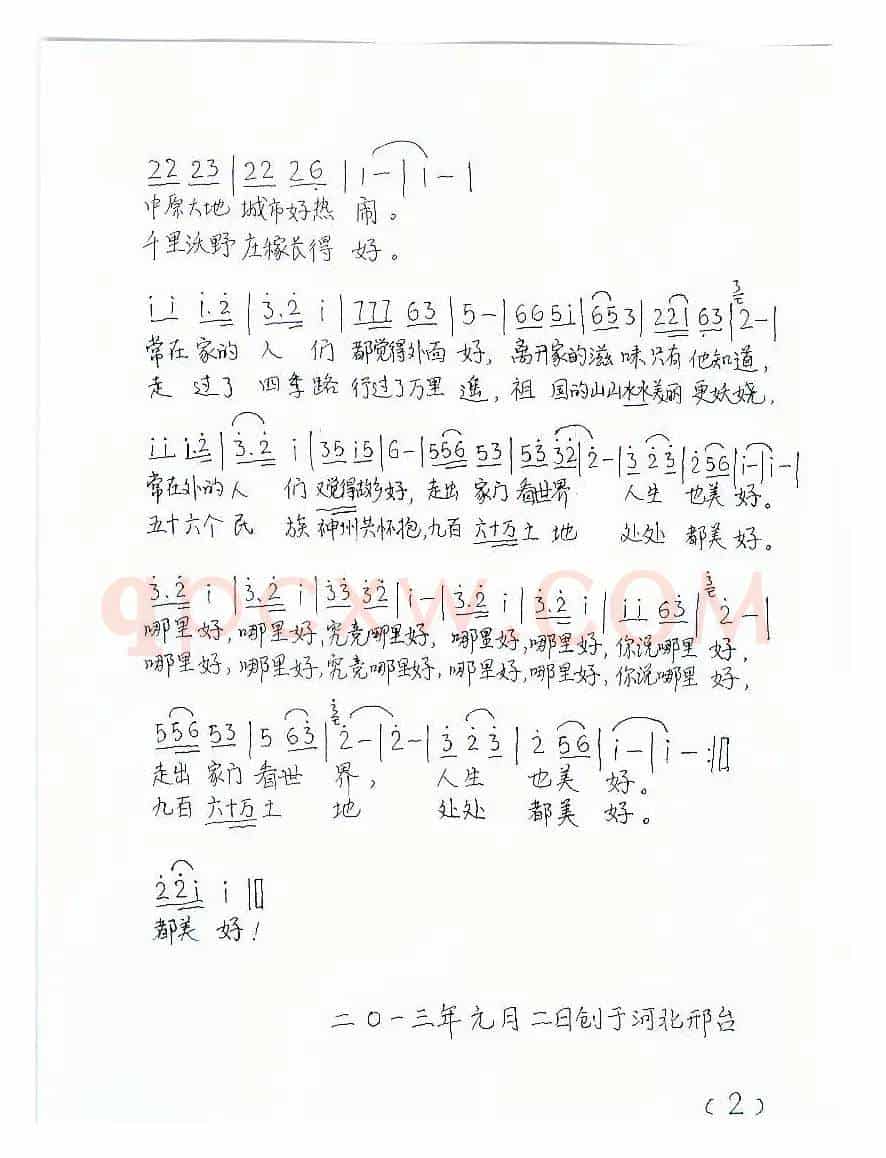 22 23 | 22 26 | i - | i - |
中原大地 城市好热 闹。
千里沃野 庄稼长得 好。
i i i.2 | 3.2 i | 777 63 | 5 - | 665i | 653 | 22i 63 | 2 - |
常在 家的 人 们 都觉得外面 好, 离开家的滋 味 只有 他知道,
走 过了 四季路 行过了万里 遥, 祖 国的山山水水美丽 更妖娆,
i i i.2 | 3.2 i | 35 i5 | 6 - | 556 53 | 53 32 | 2 - | 3 23 | 2 56 | i - | i - |
常在外的 人 们 又觉得故乡好, 走出 家门 看世界 人生 也美 好。
五十六个 民 族 神州共怀抱, 九百 六十万 土 地 处处 都美 好。
qpcxw.COM
3.2 i | 3.2 i | 33 32 | i - | 3.2 i | 3.2 i | i i 63 | 2 - |
哪里 好, 哪里 好, 究竟哪里好, 哪里好, 哪里 好, 你说哪里 好,
哪里 好, 哪里 好, 究竟哪里好, 哪里好, 哪里 好, 你说哪里 好,
556 53 | 5 63 | 2 - | 2 - | 3 23 | 2 56 | i - | i - :||
走出 家门 看世 界, 人生 也美 好。
九百 六十万 土 地 处处 都美 好。
22i i ||
都美 好!
二〇一三年元月二日创于河北邢台
(2)